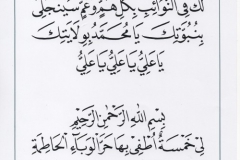 لَكَ فِي النَّوَائِبِ كُلُّ هَمٍّ وَغَمٍّ سَيَنْجَلِي
بِنُبُوَّتِكَ يَا مُحَمَّدُ بِوِلَايَتِكَ
يَا عَلِيُّ يَا عَلِيُّ يَا عَلِيُّ
بِسْمِ اللهِ الرَّحْمٰنِ الرَّحِيْمِ
لِيْ خَمْسَةٌ أُطْفِيْ بِهَا حَرَّ الْوَبَاءِ الْحَاطِمَةِ